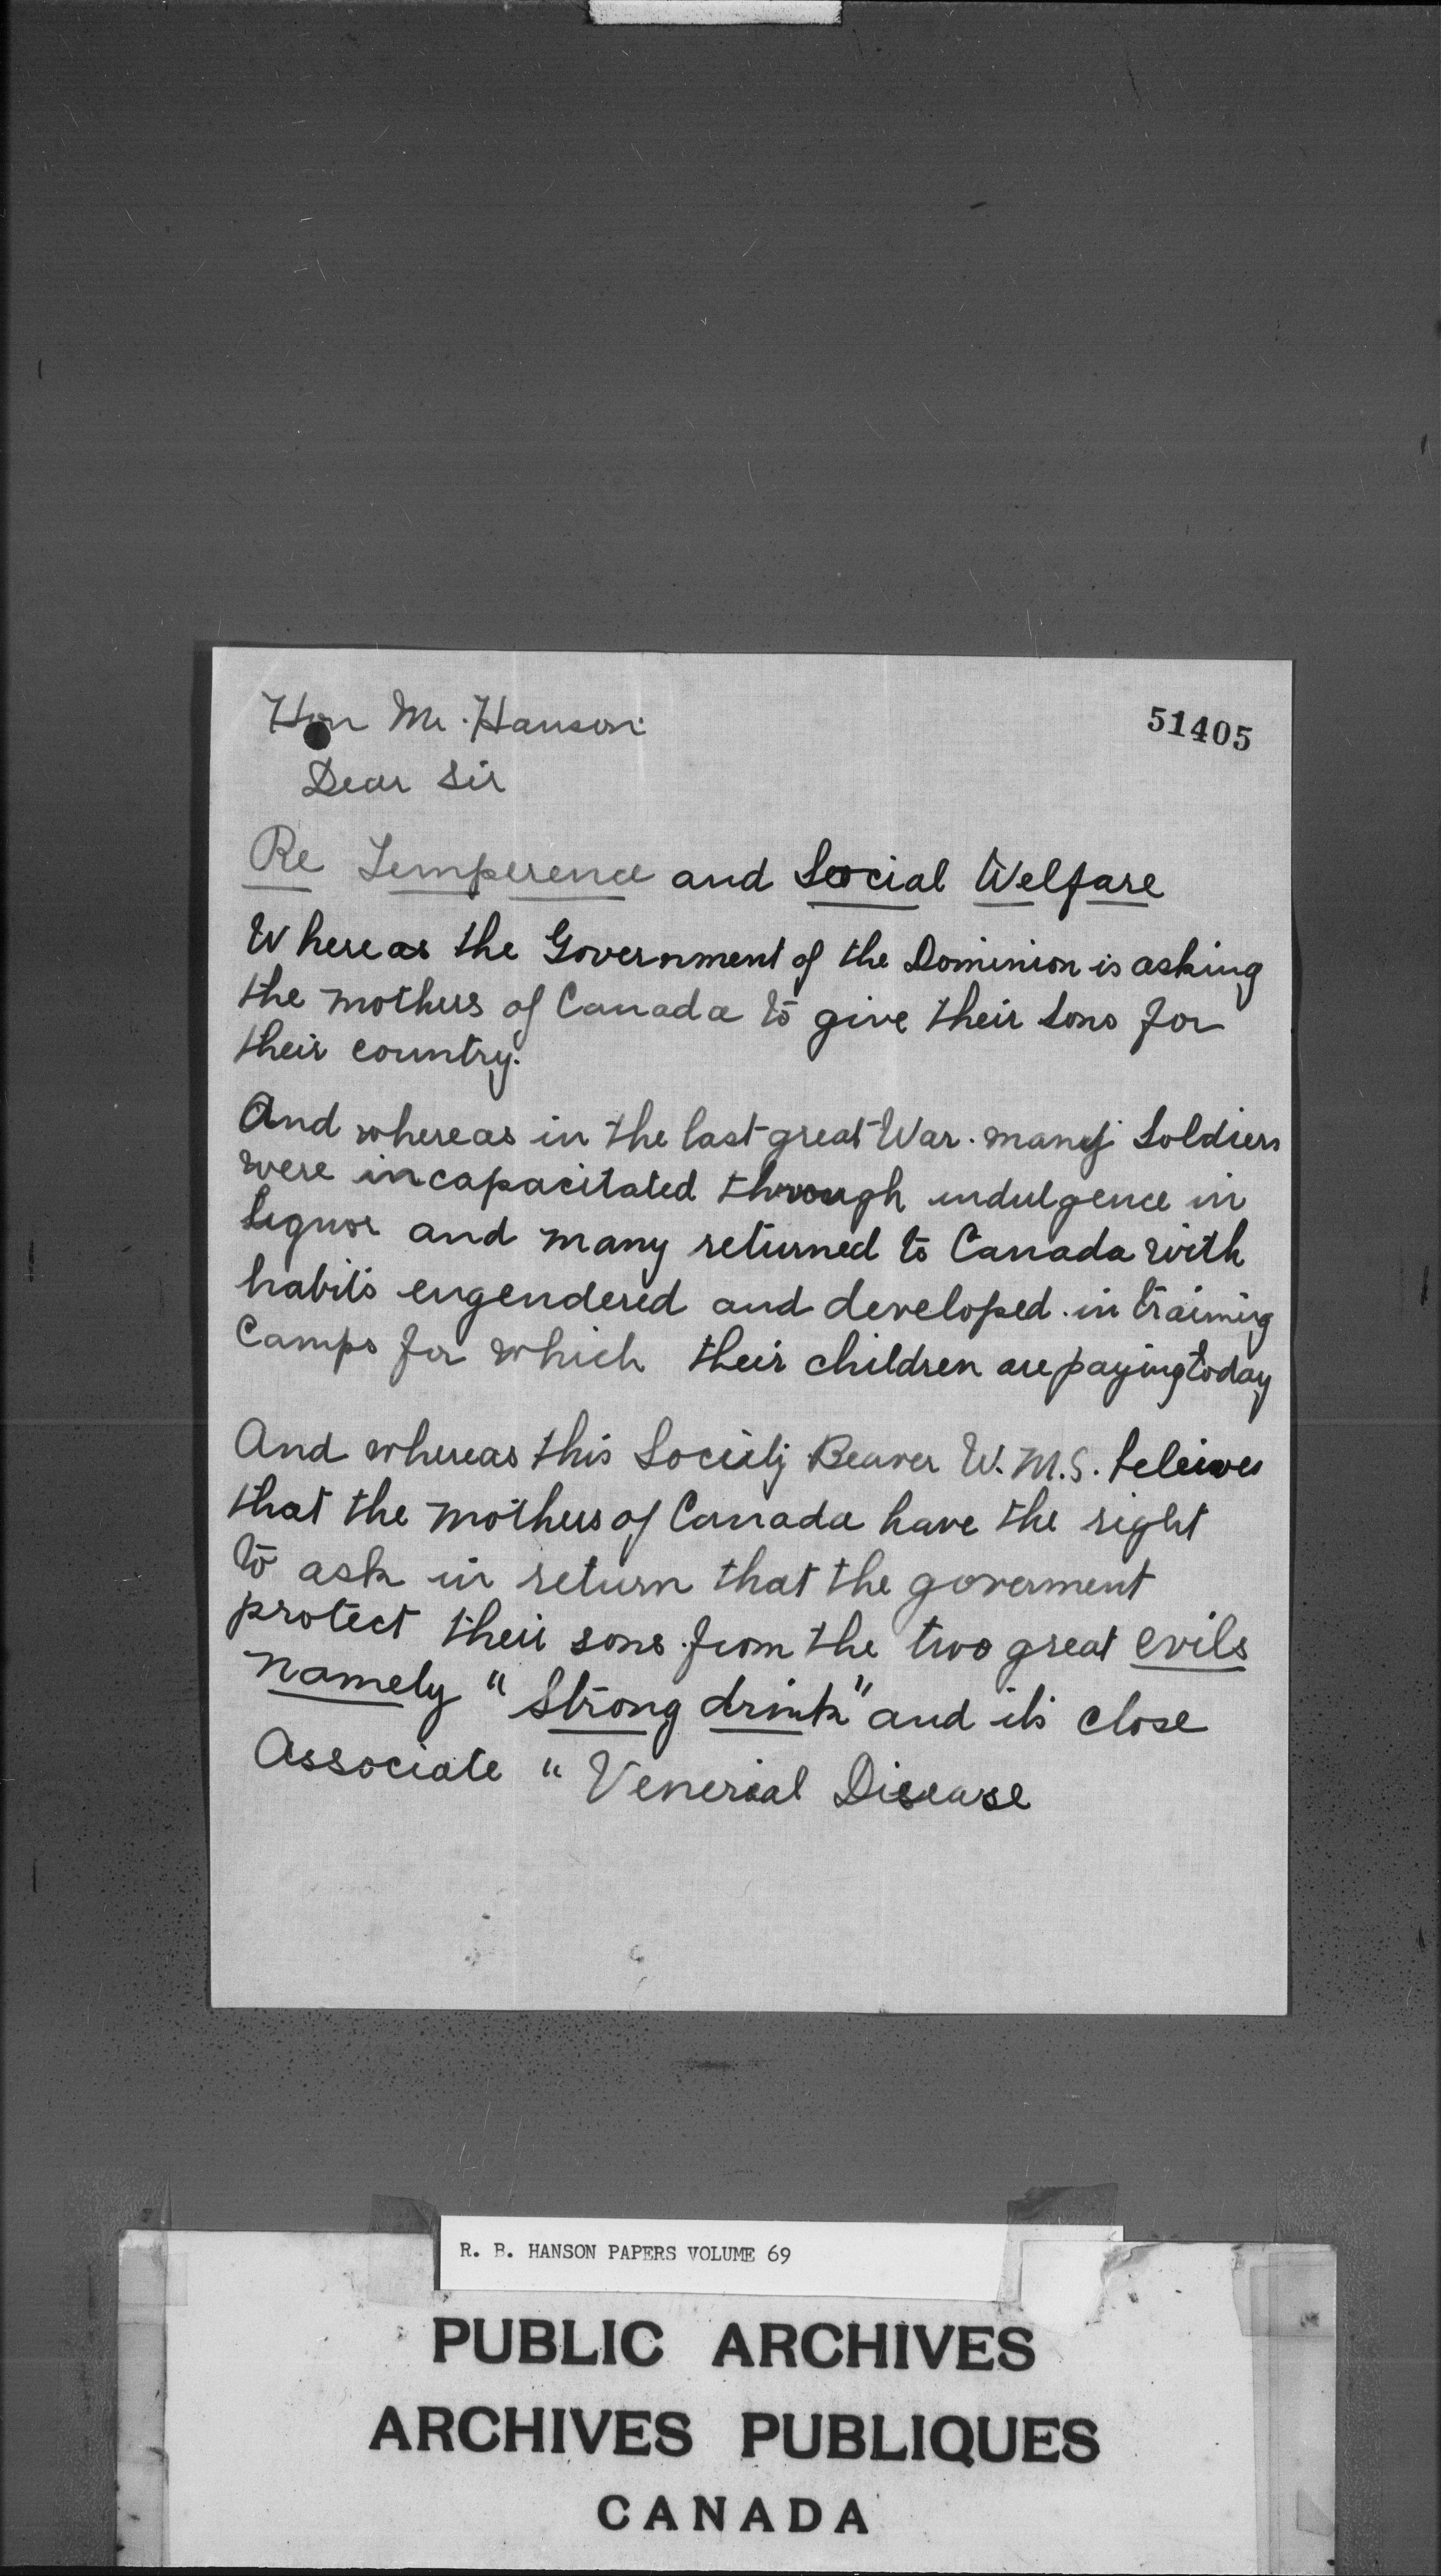 Hon Mr. Hanson
51405
Dear Sir
Re Temperence and Social Welfare
Whereas the Government of the Dominion is asking
the mothers of Canada to give their sons for
their country.
And whereas in the last great War. many soldiers
were incapacitated through indulgence in
liquor and many returned to Canada with
habits engendered and developed in training
Camps for which their children are paying today
And whereas this Society Beaver W.M.S. beleives
that the mothers of Canada have the right
to ask in return that the goverment
protect their sons from the two great evils
namely "Strong drink" and its close
Associate "Venerial Disease
R. B. HANSON PAPERS VOLUME 69
PUBLIC ARCHIVES
ARCHIVES PUBLIQUES
CANADA